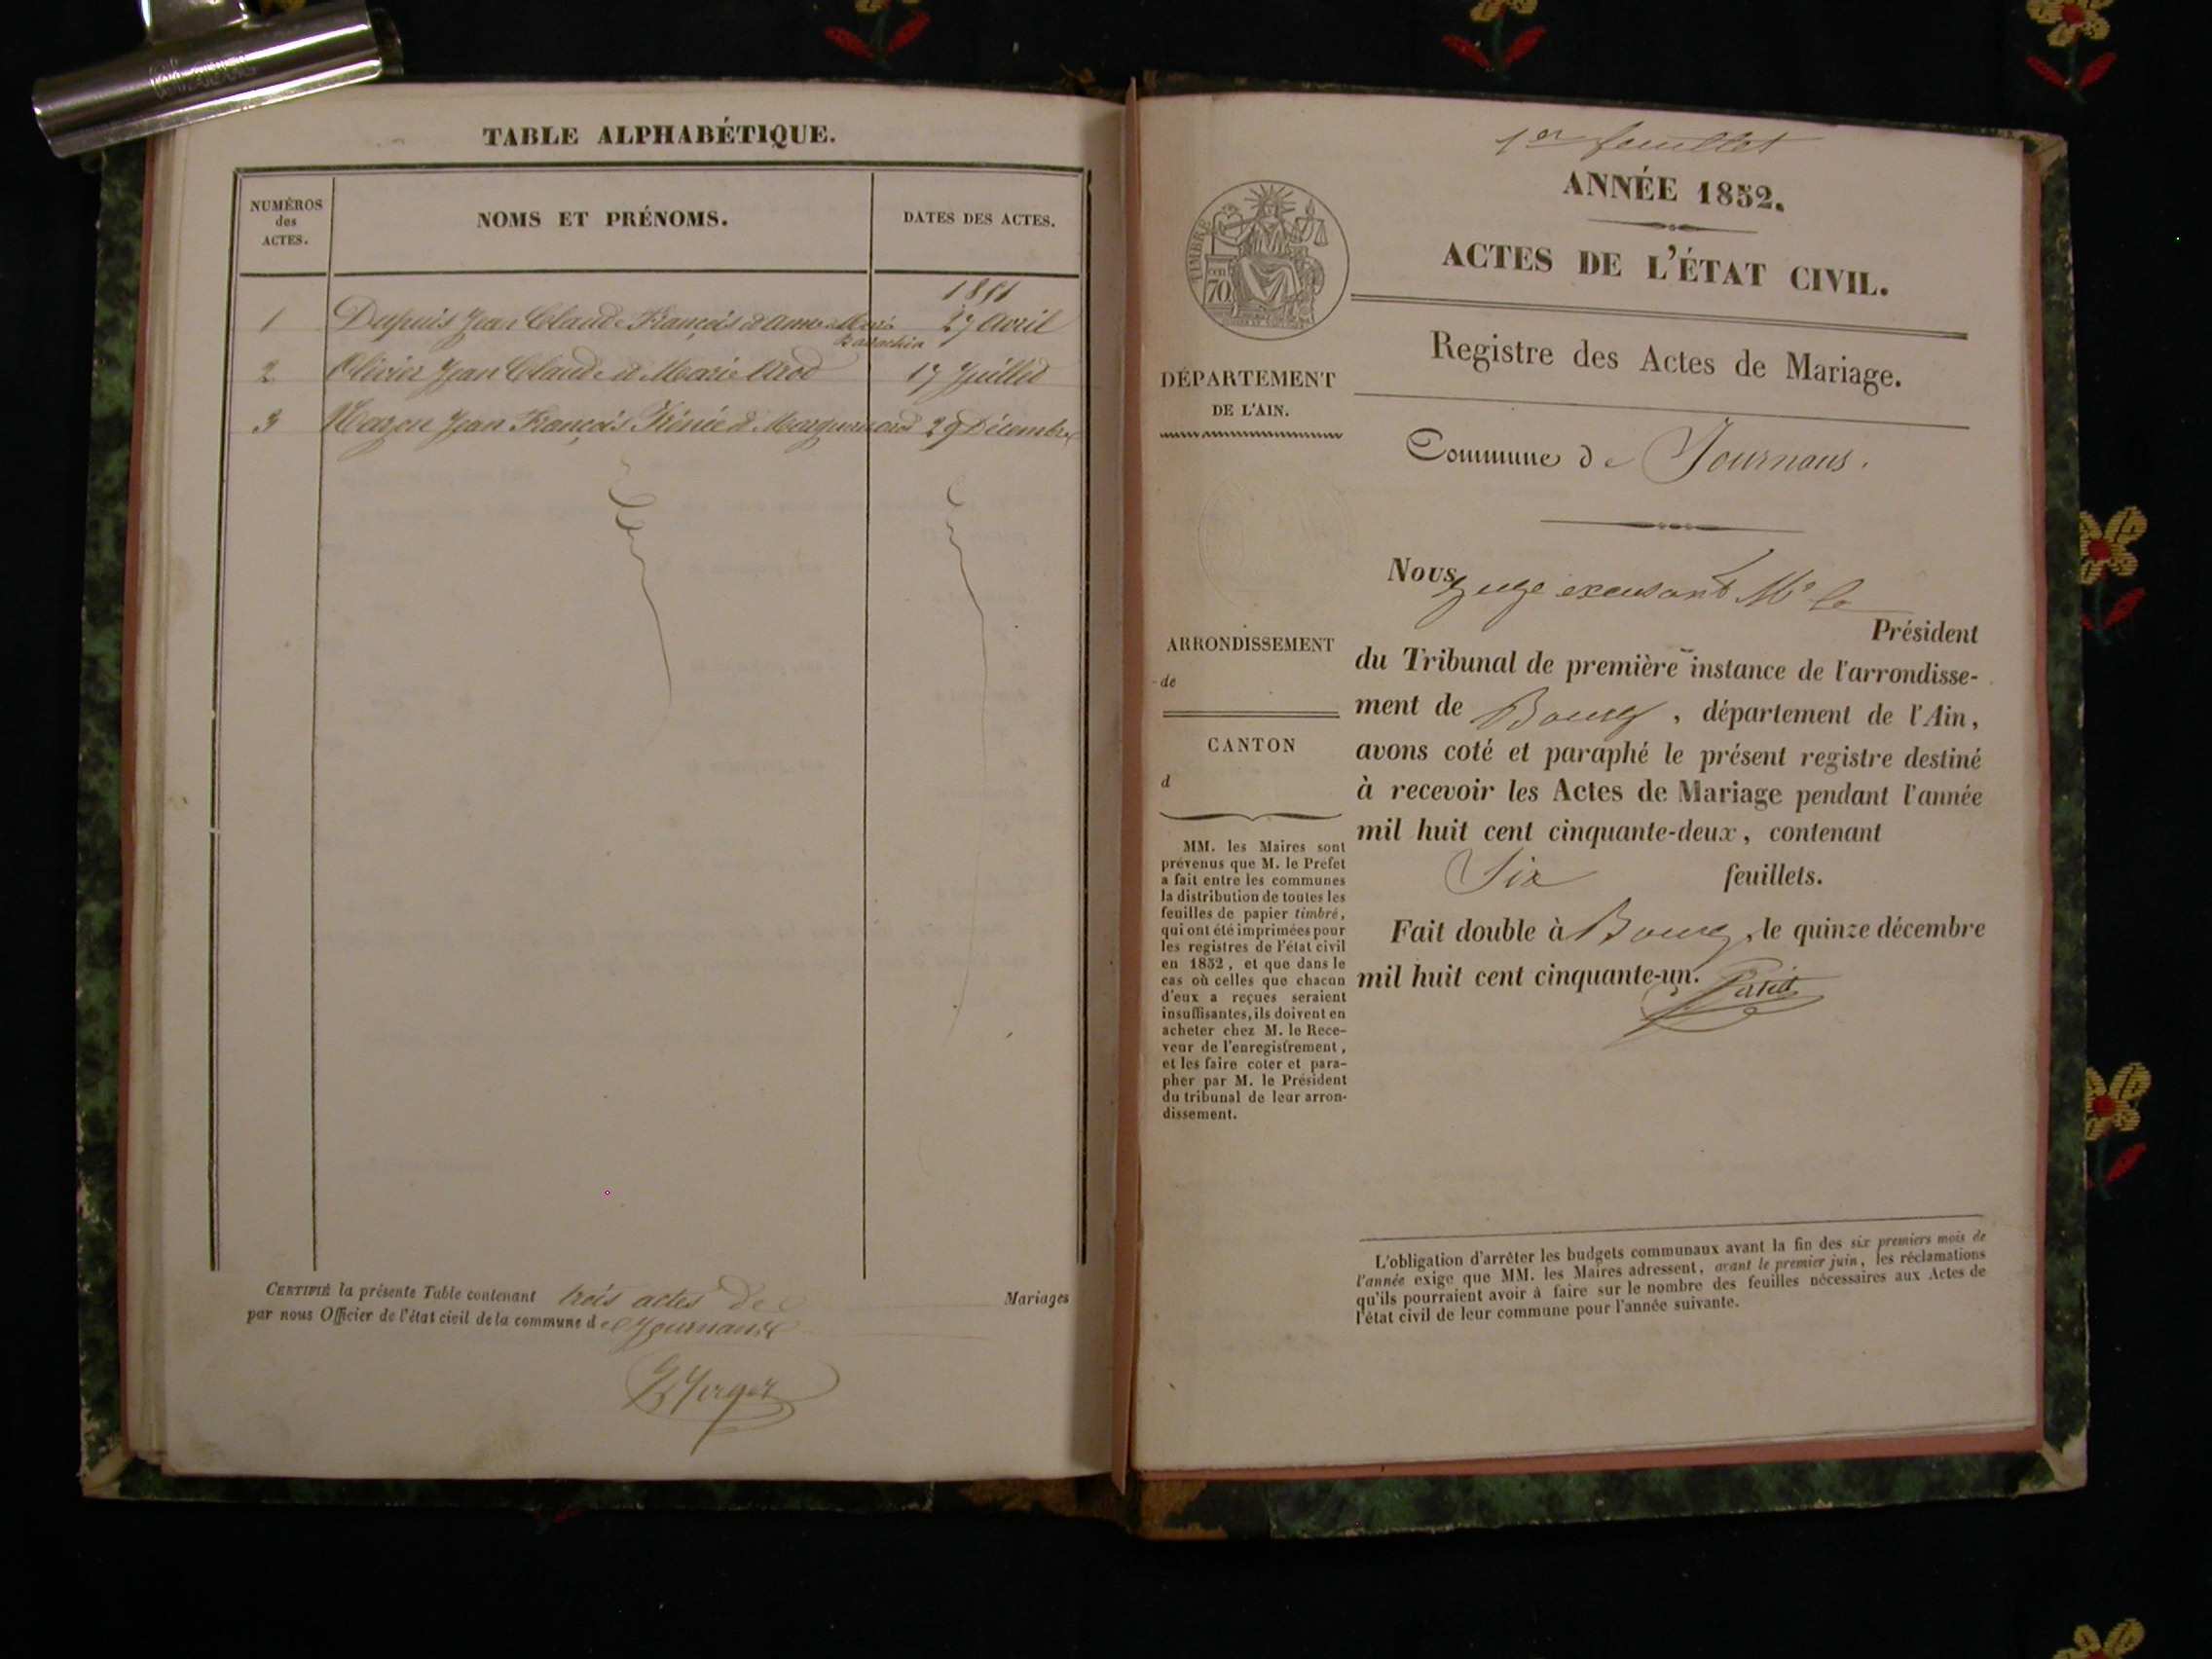 TABLE ALPHABÉTIQUE.
NUMÉROS
des
ACTES.
NOMS ET PRÉNOMS.
DATES DES ACTES.
1851
1 Dupuis Jean Claude François et Anne Marie 27 Avril
2 Olivier Jean Claude et Marie Prod 17 Juillet
3 Mazon Jean François Irénée et 29 Décembre
CERTIFIÉ la présente Table contenant trois actes de Mariages
par nous Officier de l'état civil de la commune de Journans
1er feuillet
ANNÉE 1852.
ACTES DE L'ÉTAT CIVIL.
Registre des Actes de Mariage.
TIMBRE
70
DÉPARTEMENT
DE L'AIN.
Commune de Journans.
Nous, juge excusant Mr le
Président
du Tribunal de première instance de l'arrondisse-
ment de Bourg, département de l'Ain,
avons coté et paraphé le présent registre destiné
à recevoir les Actes de Mariage pendant l'année
mil huit cent cinquante-deux, contenant
Six feuillets.
Fait double à Bourg, le quinze décembre
mil huit cent cinquante-un.
ARRONDISSEMENT
de
CANTON
d
MM. les Maires sont
prévenus que M. le Préfet
a fait entre les communes
la distribution de toutes les
feuilles de papier timbré,
qui ont été imprimées pour
les registres de l'état civil
en 1852, et que dans le
cas où celles que chacun
d'eux a reçues seraient
insuffisantes, ils doivent en
acheter chez M. le Rece-
veur de l'enregistrement,
et les faire coter et para-
pher par M. le Président
du tribunal de leur arron-
dissement.
L'obligation d'arrêter les budgets communaux avant la fin des six premiers mois de
l'année exige que MM. les Maires adressent, avant le premier juin, les réclamations
qu'ils pourraient avoir à faire sur le nombre des feuilles nécessaires aux Actes de
l'état civil de leur commune pour l'année suivante.